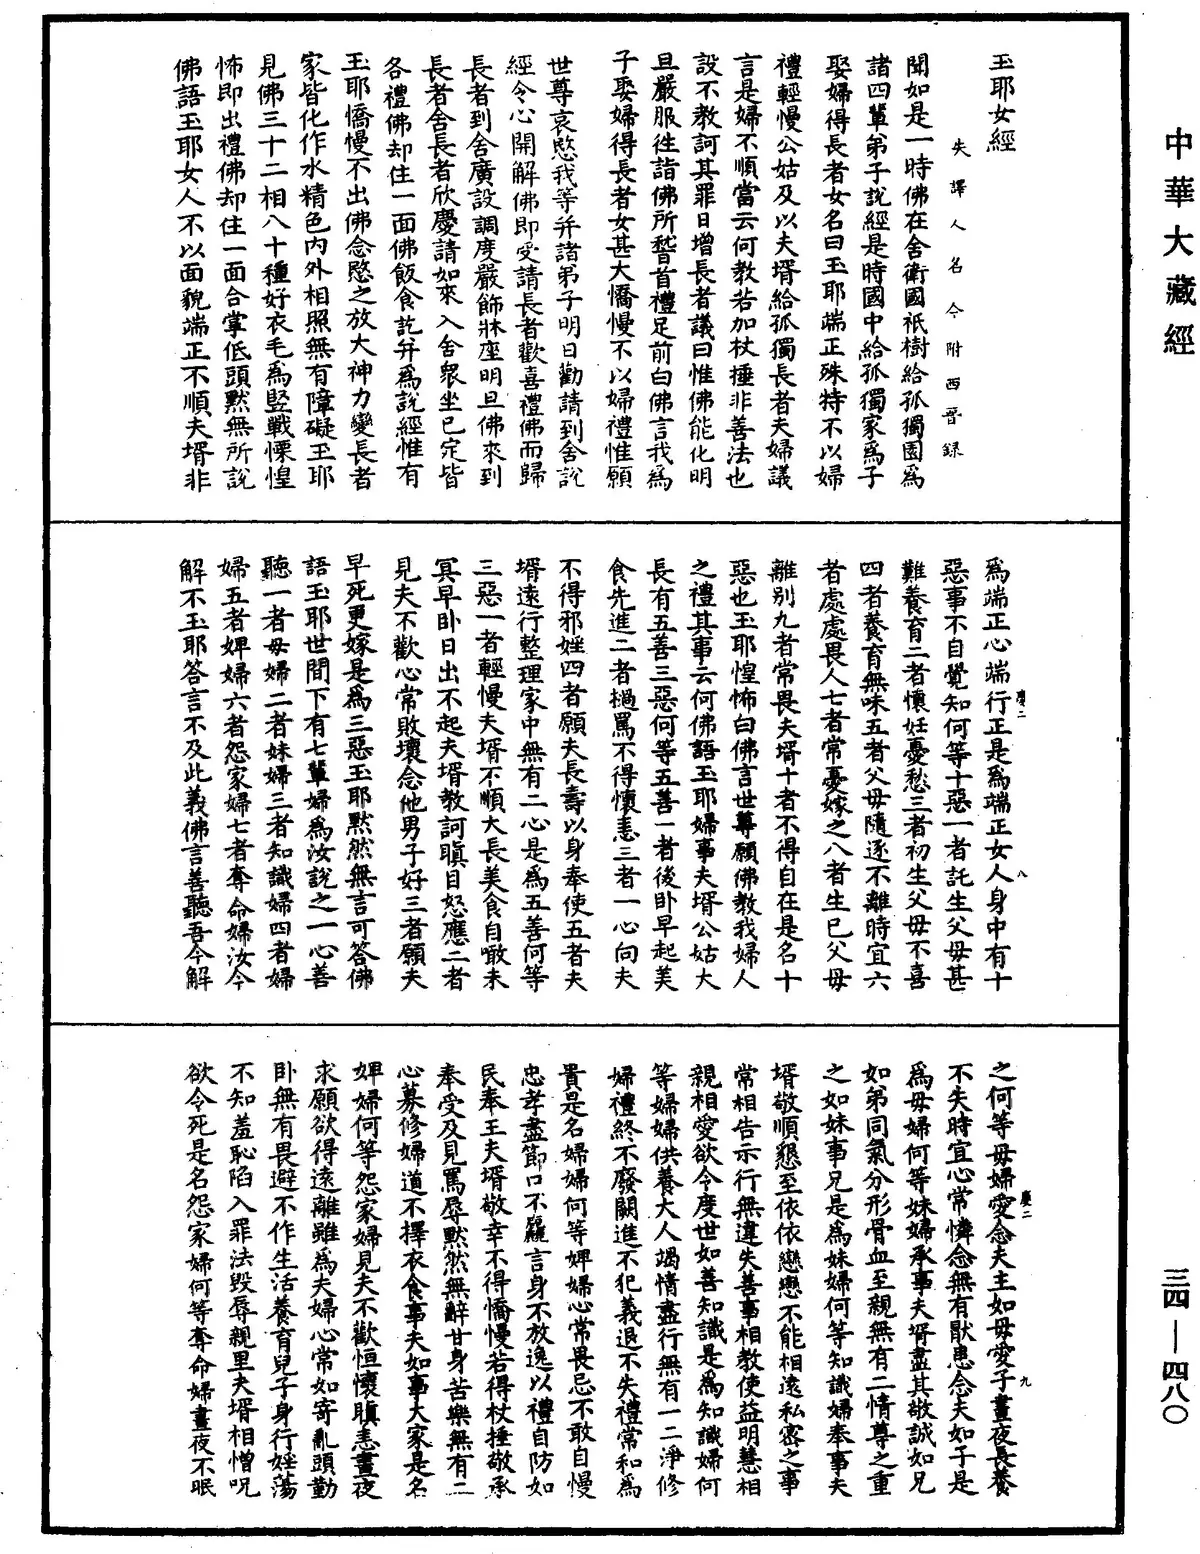 中華大藏經
玉耶女經
失譯人名今附西晉錄
聞如是一時佛在舍衛國祇樹給孤獨園爲
諸四輩弟子說經是時國中給孤獨家爲子
娶婦得長者女名曰玉耶端正殊特不以婦
禮輕慢公姑及以夫壻給孤獨長者夫婦議
言是婦不順當云何教若加杖捶非善法也
設不教訶其罪日增長者議曰惟佛能化明
旦嚴服往詣佛所稽首禮足前白佛言我爲
子娶婦得長者女甚大憍慢不以婦禮惟願
世尊哀愍我等并諸弟子明日勸請到舍說
經令心開解佛即受請長者歡喜禮佛而歸
長者到舍廣設調度嚴飾牀座明旦佛來到
長者舍長者欣慶請如來入舍衆坐已定皆
各禮佛却住一面佛飯食訖并爲說經惟有
玉耶憍慢不出佛念愍之放大神力變長者
家皆化作水精色内外相照無有障礙玉耶
見佛三十二相八十種好衣毛爲竪戰慄惶
怖即出禮佛却住一面合掌低頭默無所說
佛語玉耶女人不以面貌端正不順夫壻非
爲端正心端行正是爲端正女人身中有十
惡事不自覺知何等十惡一者託生父母甚
難養育二者懷妊憂愁三者初生父母不喜
四者養育無味五者父母隨逐不離時宜六
者處處畏人七者常憂嫁之八者生已父母
離别九者常畏夫壻十者不得自在是名十
惡也玉耶惶怖白佛言世尊願佛教我婦人
之禮其事云何佛語玉耶婦事夫壻公姑大
長有五善三惡何等五善一者後卧早起美
食先進二者撾罵不得懷恚三者一心向夫
不得邪婬四者願夫長壽以身奉使五者夫
壻遠行整理家中無有二心是爲五善何等
三惡一者輕慢夫壻不順大長美食自噉未
冥早卧日出不起夫壻教訶瞋目怒應二者
見夫不歡心常敗壞念他男子好三者願夫
早死更嫁是爲三惡玉耶默然無言可答佛
語玉耶世間下有七輩婦爲汝說之一心善
聽一者母婦二者妹婦三者知識婦四者婦
婦五者婢婦六者怨家婦七者奪命婦汝今
解不玉耶答言不及此義佛言善聽吾今解
慶二 八
之何等母婦愛念夫主如母愛子晝夜長養
不失時宜心常憐念無有猒患念夫如子是
爲母婦何等妹婦承事夫壻盡其敬誠如兄
如弟同氣分形骨血至親無有二情尊之重
之如妹事兄是爲妹婦何等知識婦奉事夫
壻敬順懇至依依戀戀不能相遠私密之事
常相告示行無違失善事相教使益明慧相
親相愛欲令度世如善知識是爲知識婦何
等婦婦供養大人竭情盡行無有一二淨修
婦禮終不廢闕進不犯義退不失禮常和爲
貴是名婦婦何等婢婦心常畏忌不敢自慢
忠孝盡節口不麤言身不放逸以禮自防如
民奉王夫壻敬幸不得憍慢若得杖捶敬承
奉受及見罵辱默然無辭甘身苦樂無有二
心募修婦道不擇衣食事夫如事大家是名
婢婦何等怨家婦見夫不歡恒懷瞋恚晝夜
求願欲得遠離雖爲夫婦心常如寄亂頭勤
卧無有畏避不作生活養育兒子身行婬蕩
不知羞恥陷入罪法毀辱親里夫壻相憎呪
欲令死是名怨家婦何等奪命婦晝夜不眠
慶二 九
三四—四八〇